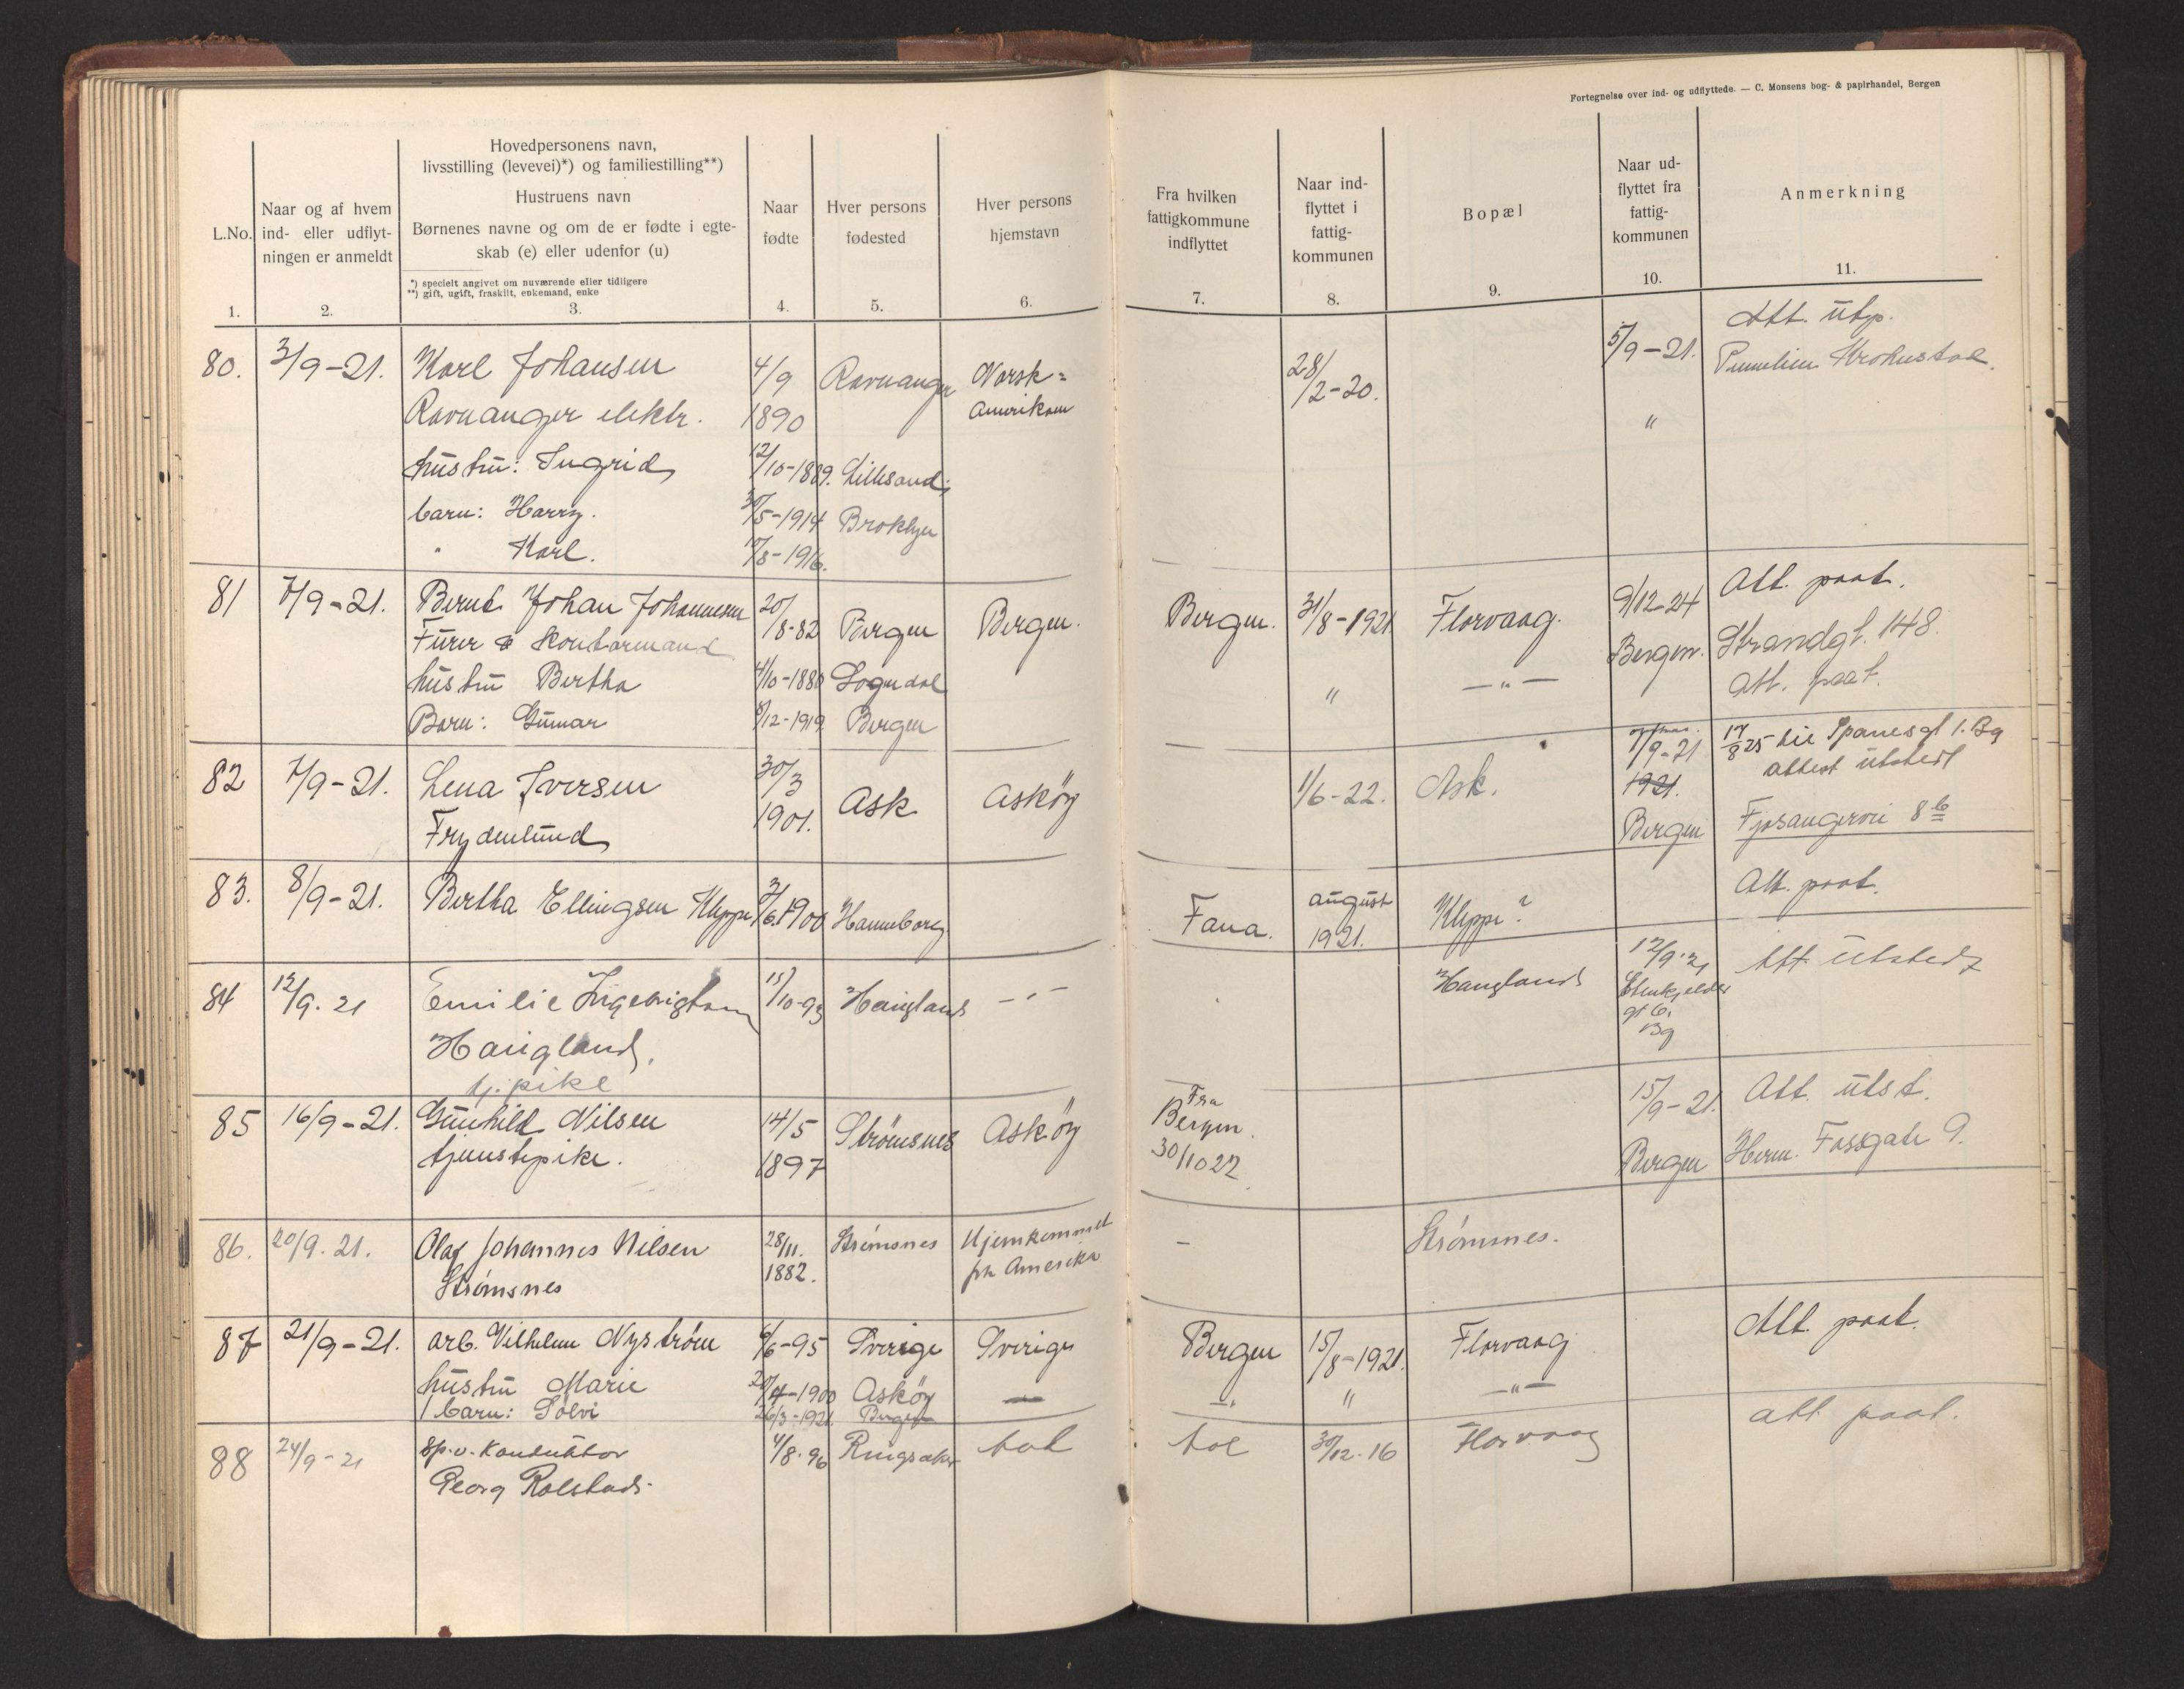 Fortegnelse over ind- og udflyttede. — C. Monsens bog- & papirhandel, Bergen
L.No.
1.
Naar og af hvem
ind- eller udflyt-
ningen er anmeldt
2.
Hovedpersonens navn,
livsstilling (levevei)*) og familiestilling**)
Hustruens navn
Børnenes navne og om de er fødte i egte-
skab (e) eller udenfor (u)
*) specielt angivet om nuværende eller tidligere
**) gift, ugift, fraskilt, enkemand, enke
3.
Naar
fødte
4.
Hver persons
fødested
5.
Hver persons
hjemstavn
6.
Fra hvilken
fattigkommune
indflyttet
7.
Naar ind-
flyttet i
fattig-
kommunen
8.
Bopæl
9.
Naar ud-
flyttet fra
fattig-
kommunen
10.
Anmerkning
11.
80. 3/9-21. Karl Johansen 4/9 Ravnanger Norsk= 28/2-20. 5/9-21. Att. utp.
Ravnanger elektr. 1890 Amerikan "
hustru: Ingrid 12/10-1889. Lillesand
barn: Harry. 5-1914 Broklyn
" Karl. 8-1916.
81 7/9-21. Bernt Johan Johannesen 20/8-82 Bergen Bergen. Bergen. 31/8-1921. Florvaag. 9/12-24 Att. paat.
Furer & Kontormand Bergen. Strandgt. 148.
hustru Bertha 4/10-1880 Sogndal " —"— Att. paat.
Barn: Gunnar 8/12-1919 Bergen
82 7/9-21. Lena Iversen 30/3 Ask Asköy 1/6-22. Ask. 7/9-21 17/8 25 til Spanesgt 1. Bg
1901. 1921. attest utstedt
Frydenlund Bergen Fjosangervei 8b
83. 8/9-21. Bertha Ellingsen Kleppe 6.1900 Hanneborg. Fana. august 1921. Kleppe? Att. paat.
84 12/9. 21 Emilie Ingebrigtsen 15/10-93 Haugland —"— Haugland 12/9.21 Att utstedt
Haugland. gt 6.
tj. pike Bg
85 16/9-21. Gunhild Nilsen 14/5 Strömsnes Asköy Fra Bergen. 15/9-21. Att. utst.
tjenestepike. 1897 30/10 22. Bergen Herm. Fossgate 9.
86. 20/9. 21. Olaf Johannes Nilsen 28/11. Strømsnes Hjemkommet — Strømsnes.
Strømsnes 1882. fra Amerika
87 21/9-21. arb. Vilhelm Nyström 6/6-95 Sverige Sverige Bergen 15/8-1921. Florvaag Att. paat.
hustru Marie 4-1900 Asköy — —"— " —"—
1 barn: Solvi 26/3-1921. Bergen
88 24/9-21 sp.v. Konduktør 4/8. 96 Ringsaker 30/12-16 Florvaag att paat.
Georg Rolstad